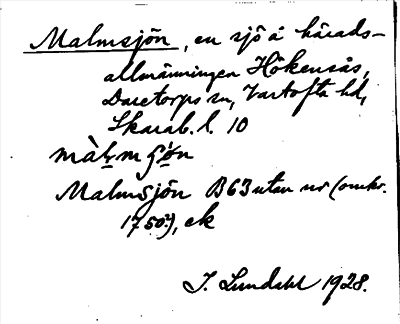 Malmsjön, en sjö å härads-
allmänningen Hökensås,
Daretorps sn, Vartofta hd,
Skarab. l. 10
màl̥mʃö̀n
Malmsjön B63 utan nr (omkr.
1750?), ek
J. Lundahl 1928.